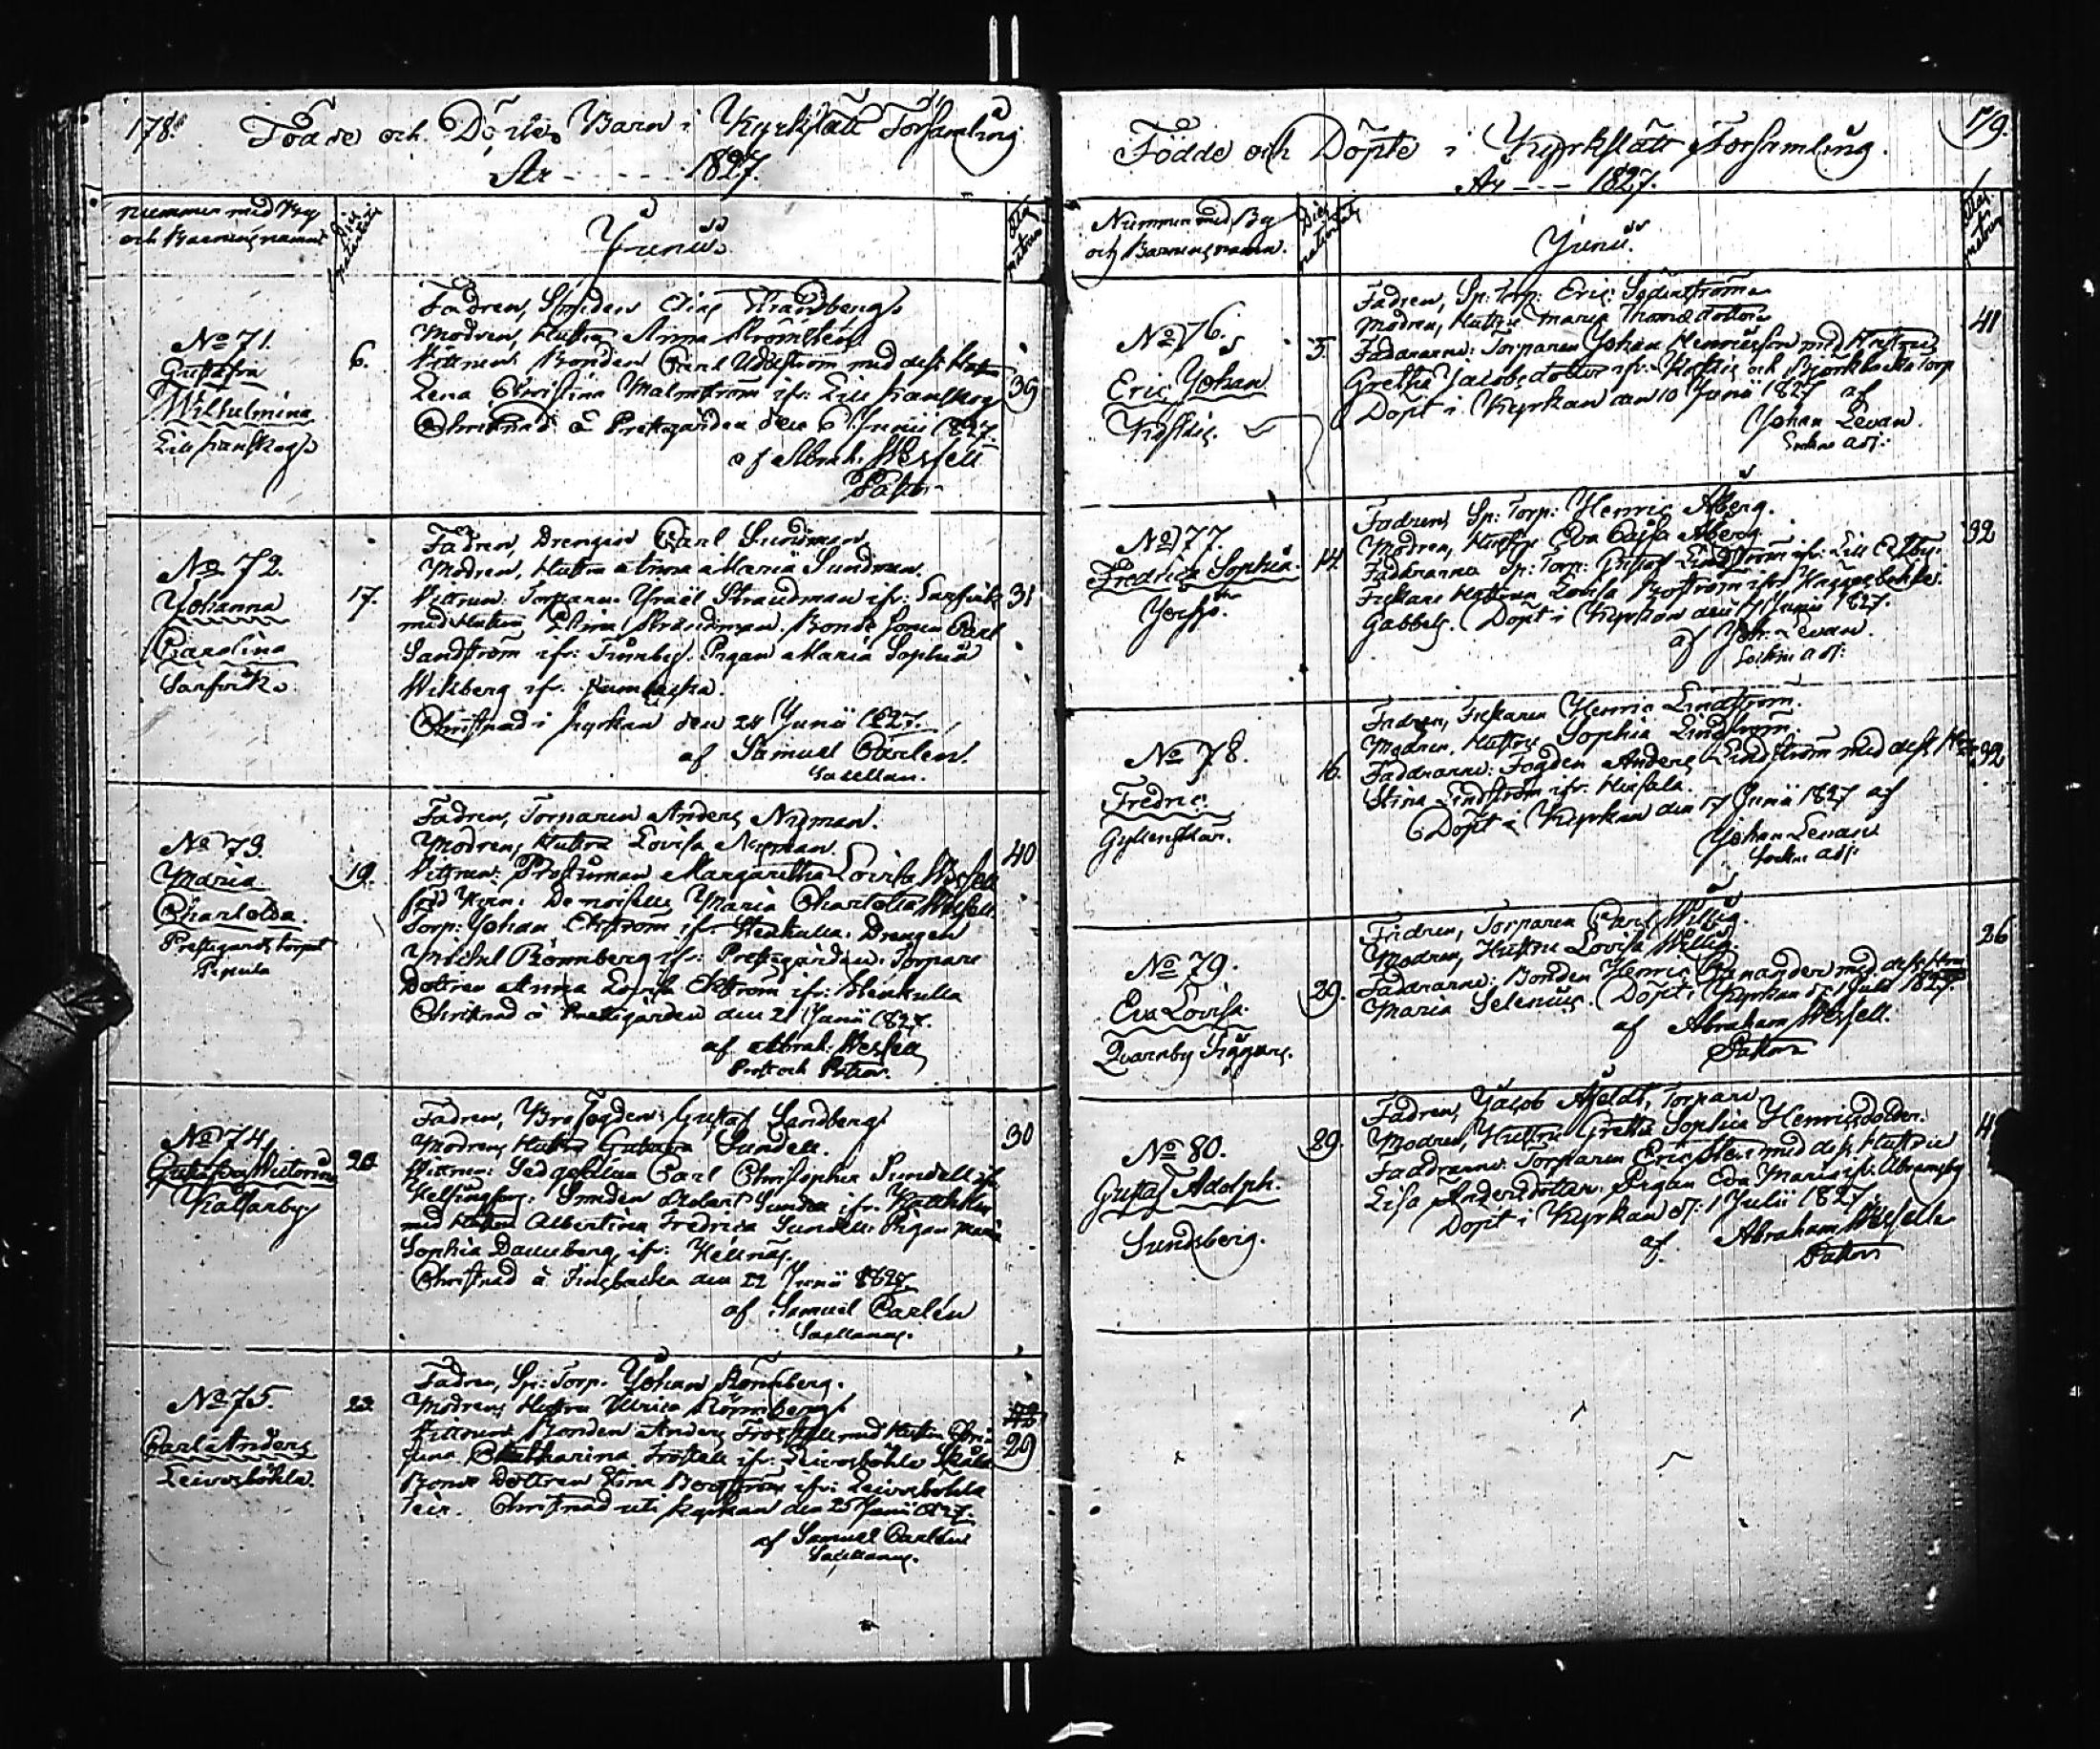 178.
Födde och Döpte Barn i Kyrkslätt Församling
År - - - - - 1827.
Nummer med By
och Barnens namn
Dies natalis
Junii
Ætas matrum
No 71.
Gustafva
Wilhelmina
Lill Kanskog
6.
Fadren, Smiden Elias Strandberg
Modren, Hustru Anna Strömsten
Vittnen: Bonden Carl Uddström med dess Hustru
Lena Christina Malmström ifr: Lill Kanskog
Christnad å Prestgården den 6 Junii 1827.
af Abrah. Wessell
Pastor
39
No 72.
Johanna
Carolina
Sarfvik
17.
Fadren, Drengen Carl Sundman
Modren, Hustru Anna Maria Sundman.
Vittnen: Torparen Israël Strandman ifr: Sarfvik
med Hustru Stina Strandman. Bonde Sonen Carl
Sandström ifr: Finnby. Pigan Maria Sophia
Wikberg ifr:
Christnad i Kyrkan den 24 Junii 1827.
af Samuel Carlén.
Sacellan.
31
No 73.
Maria
Charlotta.
Prestgards torpet
19.
Fadren, Torparen Anders Nyman.
Modren, Hustru Lovisa Nyman.
Vittnen: Prostinnan Margaretha Lovisa Wessell
född Demoiselle Maria Charlotta Wessell
Torp: Johan Ekström ifr: Stenkulla. Drengen
Michel Rönnberg ifr: Prestgården. Torpare
Dottren Anna Lovisa Ekström ifr: Stenkulla
Christnad å Prestgården den 21 Junii 1827.
af Abrah. Wessell
Prost och Pastor.
40
No 74.
Gustafva Victorina
Kattanby
20.
Fadren, Gustaf Sandberg
Modren, Hustru Sundell.
Vittnen: Gesällen Carl Christopher Sundell ifr
Helsingfors. Smeden
med Hustru Albertina Fredrica Sundell. Pigan Maria
Sophia Danneberg ifr: Hellnäs.
Christnad å den 22 Junii 1827.
af Samuel Carlén
Sacellanus.
30
No 75.
Carl Anders
Leivosböhle.
22.
Fadren, Sp: Torp. Johan Rönnberg.
Modren, Hustru Ulrica Rönnberg
Vittnen: Bonden Anders Frostell med Hustru
Catharina Frostell ifr: Leivosböhle
Bonde Dottren Stina Bergström ifr: Leivosböhle
Christnad uti Kyrkan den 25 Junii 1827.
af Samuel Carlén
Sacellanus.
29
179.
Födde och Döpte i Kyrkslätt Församling.
År - - - 1827.
Nummer med By
och Barnens namn.
Dies natalis
Junii.
Ætas matrum
No 76.
Eric Johan
5.
Fadren, Sp: Torp: Eric Söderström
Modren, Hustru Maria Thomædotter
Faddrarne: Torparen Johan Henricsson med Hustru
Gretha Jacobsdotter ifr: och Björkbacka torp
Döpt i Kyrkan den 10 Junii 1827 af
Johan Levan.
Sockne adj:
41
No 77.
Fredrica Sophia.
14.
Fadren, Sp: Torp: Henric Åberg.
Modren, Hustru Eva Cajsa Åberg
Faddrarne Sp: Torp: Gustaf Lindström ifr:
Fiskare Hustrun Lovisa Boström ifrå
Gabbels. Döpt i Kyrkan den 17 Junii 1827.
af Joh: Levan.
Sockne adj:
32
No 78.
Fredric.
Gyllenskär.
16.
Fadren, Fiskaren Henric Lindström.
Modren, Hustru Sophia Lindström.
Faddrarne: Fogden Anders Lindström med dess
Stina Lindström ifr: Hirsala.
Döpt i Kyrkan den 17 Junii 1827 af
Johan Levan
Sockne adj:
32
No 79.
Eva Lovisa.
Qvarnby Figgars.
29.
Fadren, Torparen Carl Willig.
Modren, Hustru Lovisa Willig.
Faddrarne: Bonden Henric Granander med dess
Maria Selenius. Döpt i Kyrkan d: 1 Julii 1827
af Abraham Wessell.
Pastor
26
No 80.
Gustaf Adolph.
Sundsberg.
29.
Fadren, Jacob Torpare
Modren, Hustru Gretha Sophia Henricsdotter.
Faddrarne: Torparen Eric med dess Hustru
Lisa Andersdotter. Pigan Eva Maria ifr: Abramsby
Döpt i Kyrkan d: 1 Julii 1827.
af Abraham Wessell
Pastor